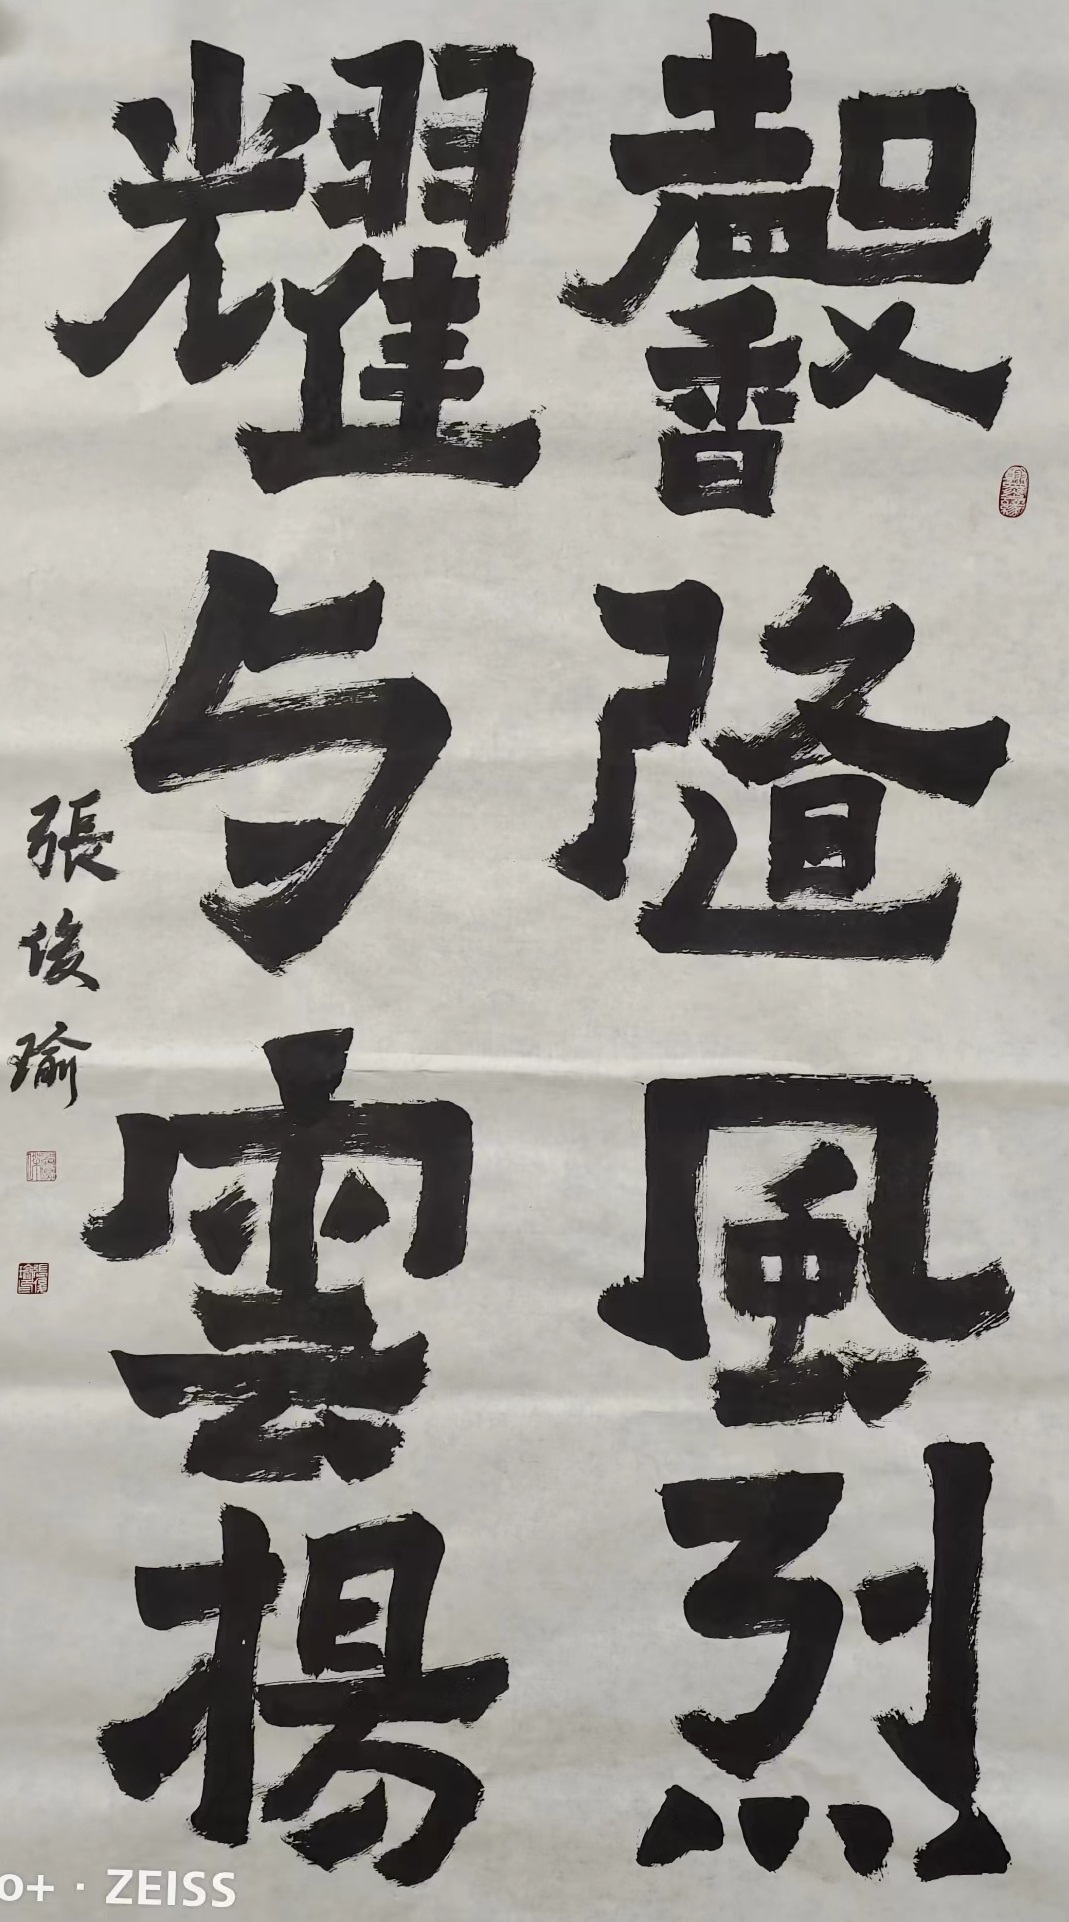 馨隨風烈
耀与雲揚
張俊瑜
o+ · ZEISS